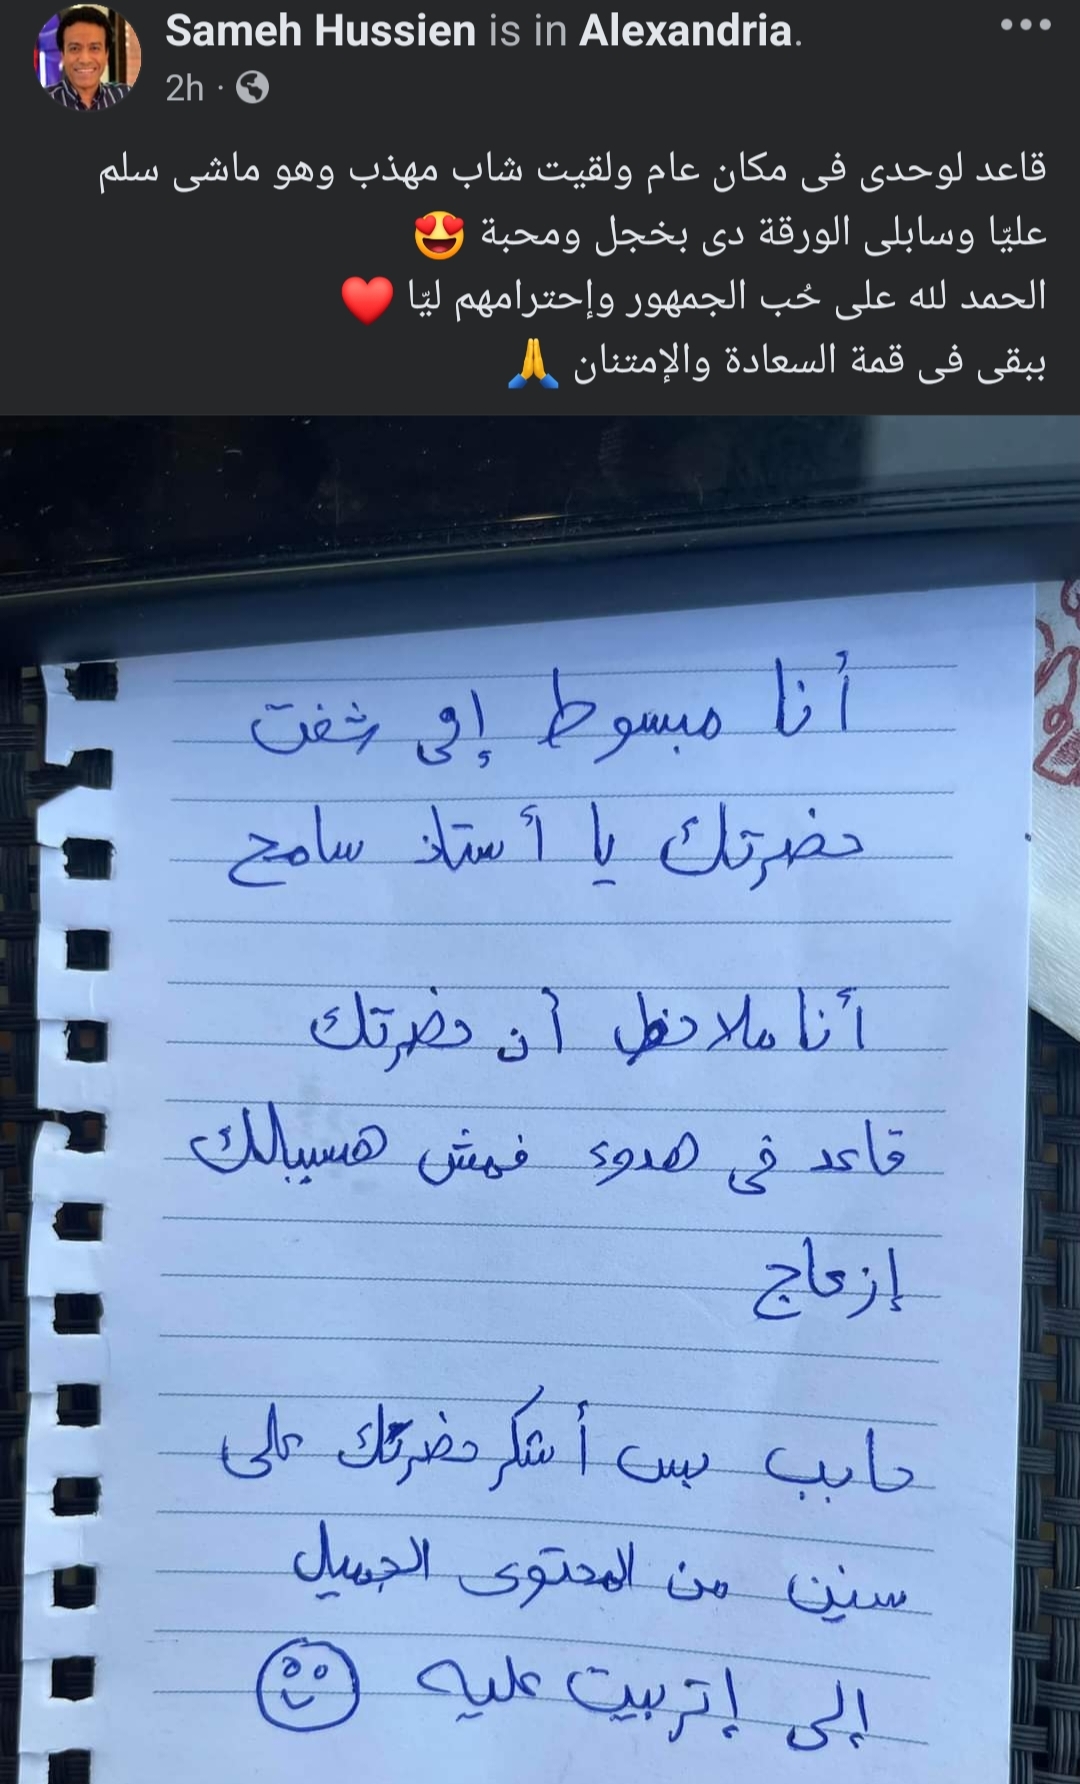 Sameh Hussien is in Alexandria.
2h
قاعد لوحدى فى مكان عام ولقيت شاب مهذب وهو ماشى سلم
عليّا وسابلى الورقة دى بخجل ومحبة 😍
الحمد لله على حُب الجمهور وإحترامهم ليّا ❤️
ببقى فى قمة السعادة والإمتنان 🙏
أنا مبسوط إنى شفت
حضرتك يا أستاذ سامح
أنا ملاحظ أن حضرتك
قاعد فى هدوء فمش هسببلك
إزعاج
حابب بس أشكر حضرتك على
سنين من المحتوى الجميل
إلى إتربيت عليه